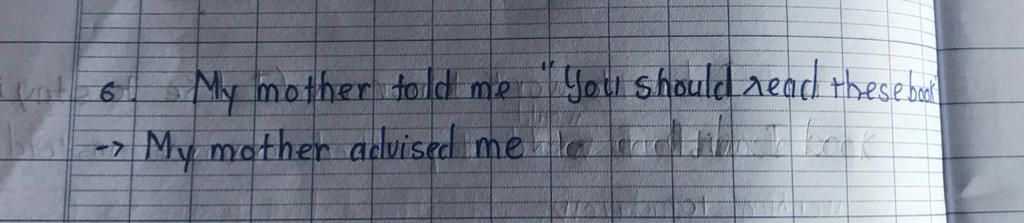 6. My mother told me "You should read these book
→ My mother advised me